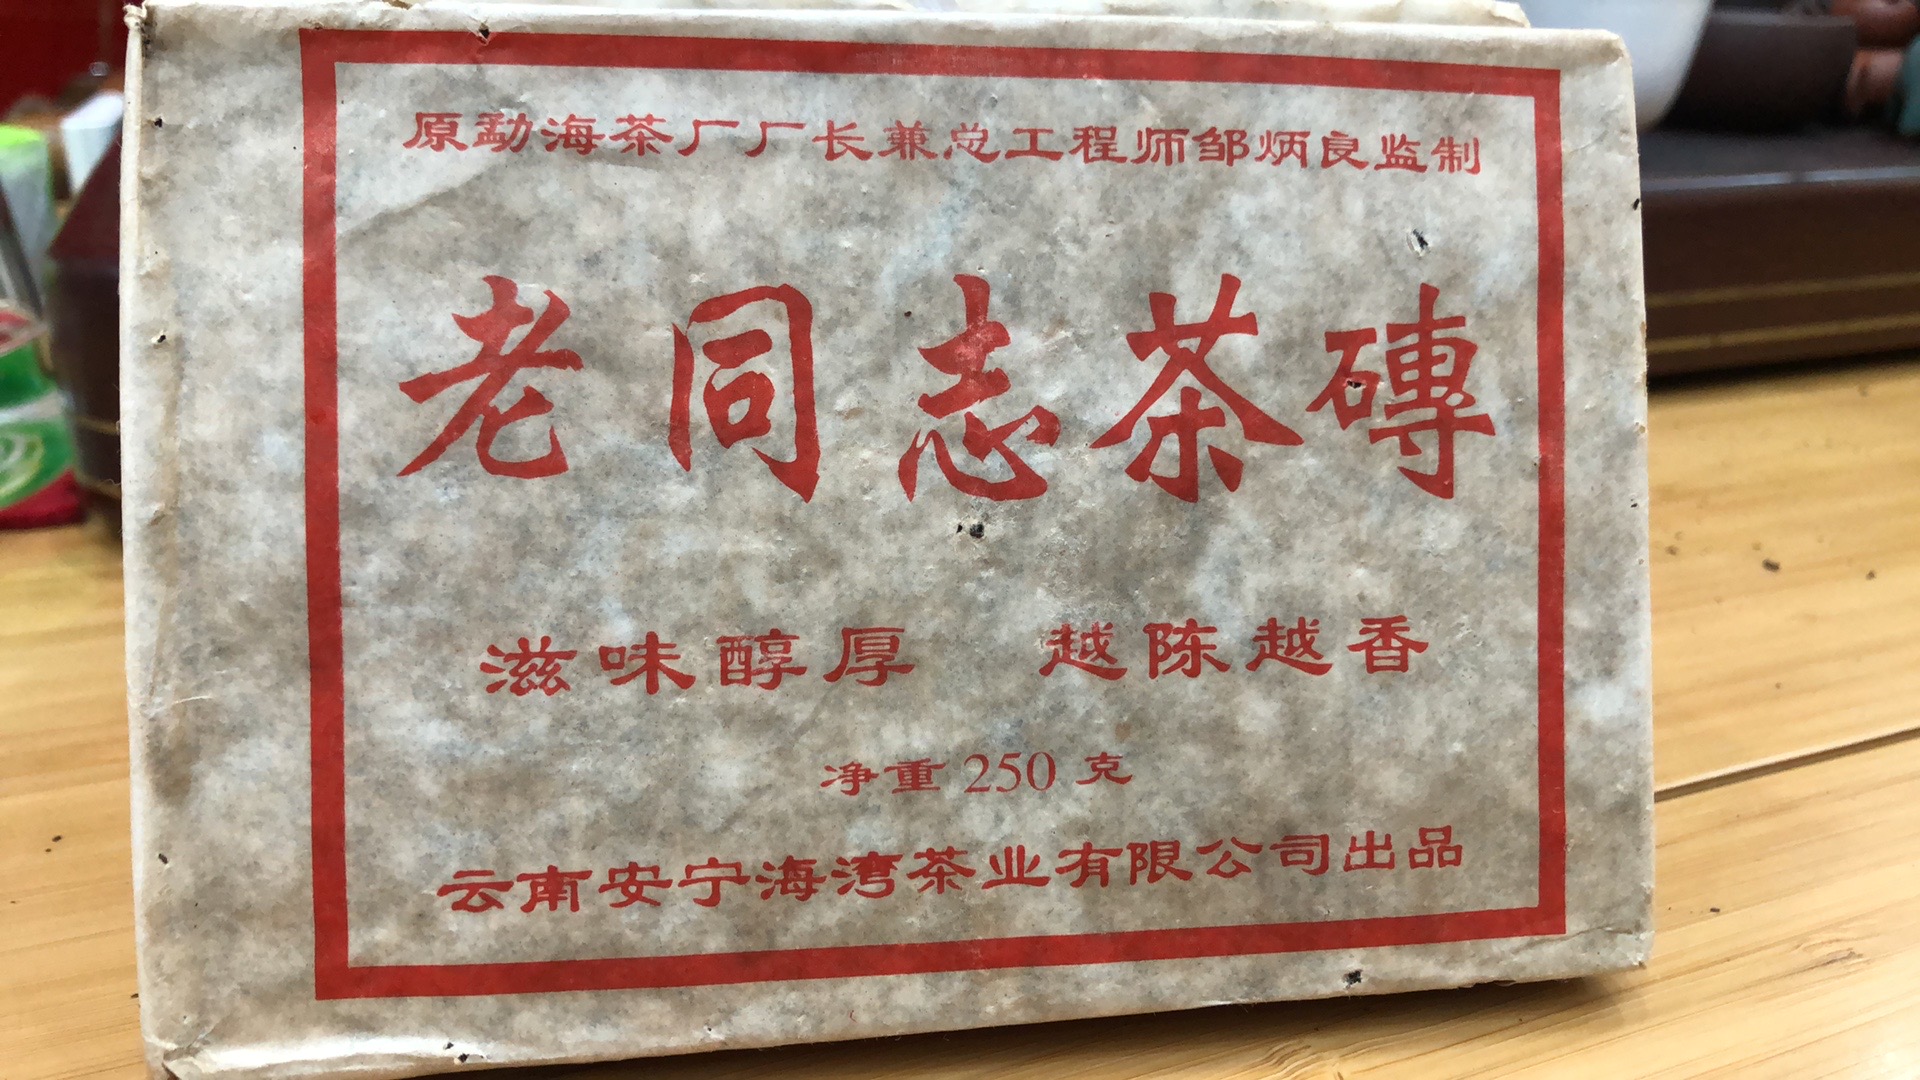 原勐海茶厂厂长兼总工程师邹炳良监制
老同志茶磚
滋味醇厚 越陈越香
净重 250 克
云南安宁海湾茶业有限公司出品